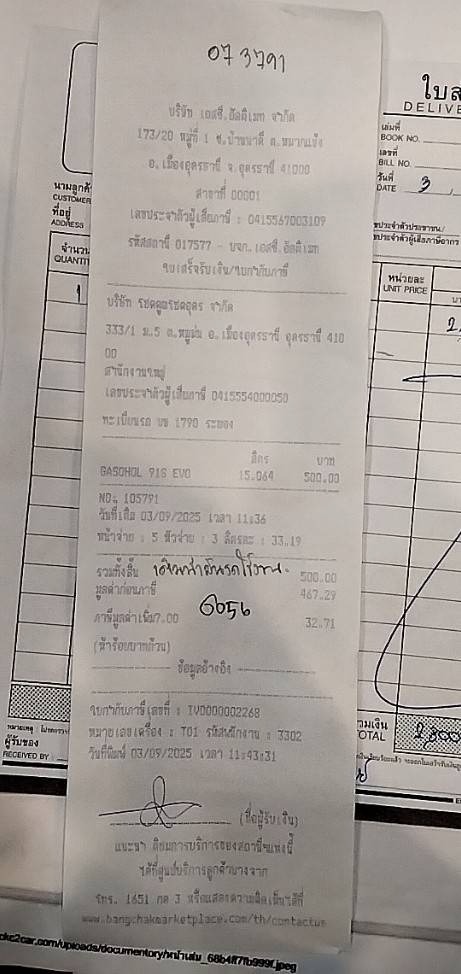 073791
บริษัท เอสซี.อัลติเมท จำกัด
173/20 หมู่ที่ 1 ซ.บ้านนาดี ต.หมากแข้ง
อ.เมืองอุดรธานี จ.อุดรธานี 41000
สาขาที่ 00001
เลขประจำตัวผู้เสียภาษี : 0415567003109
รหัสสถานี 017577 - บจก.เอสซี.อัลติเมท
ใบเสร็จรับเงิน/ใบกำกับภาษี
บริษัท โชคคูณโชคอุดร จำกัด
333/1 ม.5 ต.หมูม่น อ.เมืองอุดรธานี อุดรธานี 410
00
สำนักงานใหญ่
เลขประจำตัวผู้เสียภาษี 0415554000050
ทะเบียนรถ บบ 1790 ระยอง
ลิตร บาท
GASOHOL 91S EVO 15.064 500.00
NO: 105791
วันที่เติม 03/09/2025 เวลา 11:36
หน้าจ่าย : 5 หัวจ่าย : 3 ลิตรละ : 33.19
รวมทั้งสิ้น 500.00
มูลค่าก่อนภาษี 467.29
6056
ภาษีมูลค่าเพิ่ม7.00 32.71
(ห้าร้อยบาทถ้วน)
ข้อมูลอ้างอิง
ใบกำกับภาษีเลขที่ : IV0000002268
หมายเลขเครื่อง : T01 รหัสพนักงาน : 3302
วันที่พิมพ์ 03/09/2025 เวลา 11:43:31
(ชื่อผู้รับเงิน)
แนะนำ ติชมการบริการของสถานีฯแห่งนี้
ได้ที่ศูนย์บริการลูกค้าบางจาก
โทร. 1651 กด 3 หรือแสดงความคิดเห็นได้ที่
www.bangchakmarketplace.com/th/contactus
ใบส
DELIVE
เล่มที่
BOOK NO.
เลขที่
BILL NO.
วันที่
DATE 3
นามลูกค้
CUSTOMER
ที่อยู่
ADDRESS
จำนวน
QUANTIT
หน่วยละ
UNIT PRICE
1
วมเงิน
OTAL 2,800
ผู้รับของ
RECEIVED BY
ckc2car.com/uploads/documentory/หน้าเติม_68b4ff7fb999f.jpeg